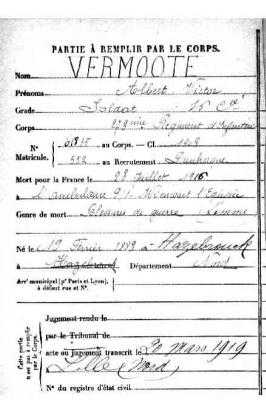 PARTIE À REMPLIR PAR LE CORPS.
Nom VERMOOTE
Prénoms Albert Victor
Grade Soldat
Corps Régiment d'Infanterie
N° au Corps. — Cl. 1909
Matricule. 552 au Recrutement Dunkerque
Mort pour la France le 23 Juillet 1916
à L'ambulance
Genre de mort Blessures de guerre
Né le 12 Février 1889 à Hazebrouck
à Hazebrouck Département Nord
Arrt municipal (pr Paris et Lyon),
à défaut rue et N°.
Cette partie
n'est pas à remplir
par le Corps.
Jugement rendu le
par le Tribunal de
acte ou jugement transcrit le 20 Mars 1919
Lille (Nord)
N° du registre d'état civil